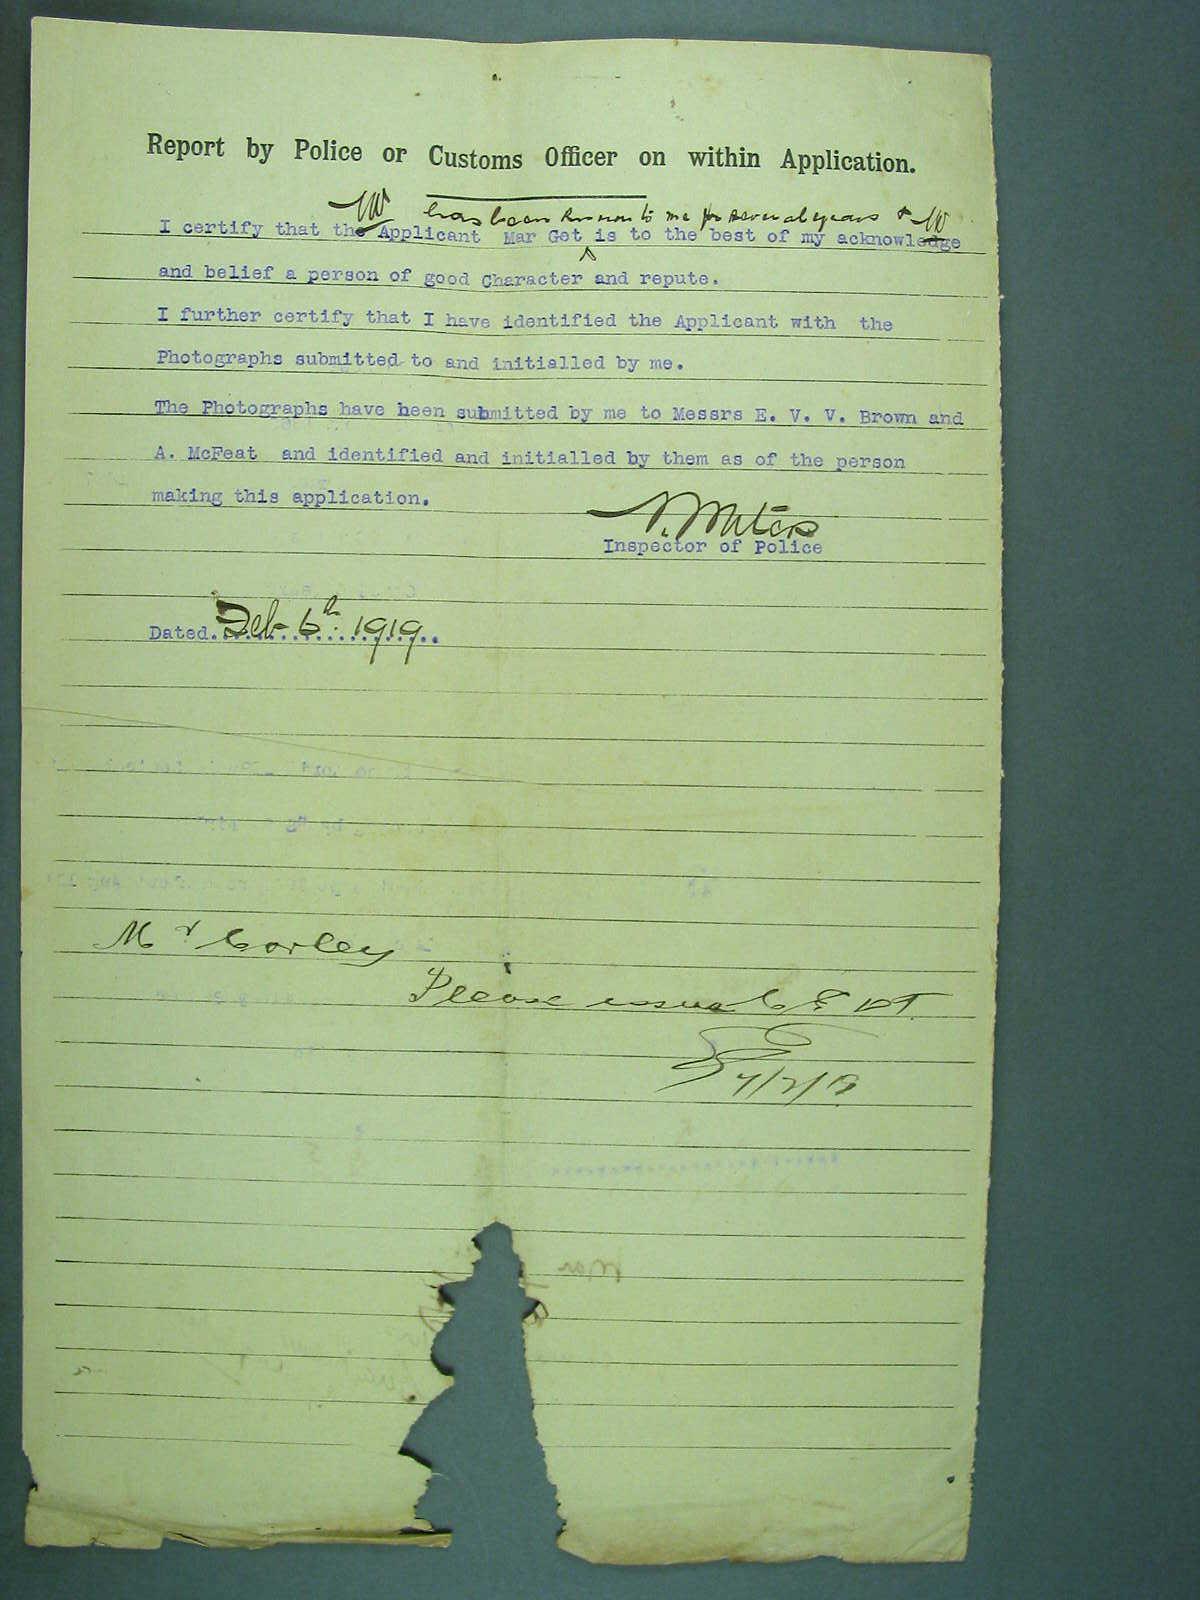 Report by Police or Customs Officer on within Application.
has been known to me for several years &
I certify that the Applicant Mar Get is to the best of my acknowledge
and belief a person of good Character and repute.
I further certify that I have identified the Applicant with the
Photographs submitted to and initialled by me.
The Photographs have been submitted by me to Messrs E. V. V. Brown and
A. McFeat and identified and initialled by them as of the person
making this application.
Inspector of Police
Dated. Feb 6th 1919
Mr Corley
Please issue C E D T.
7/2/19
Mar